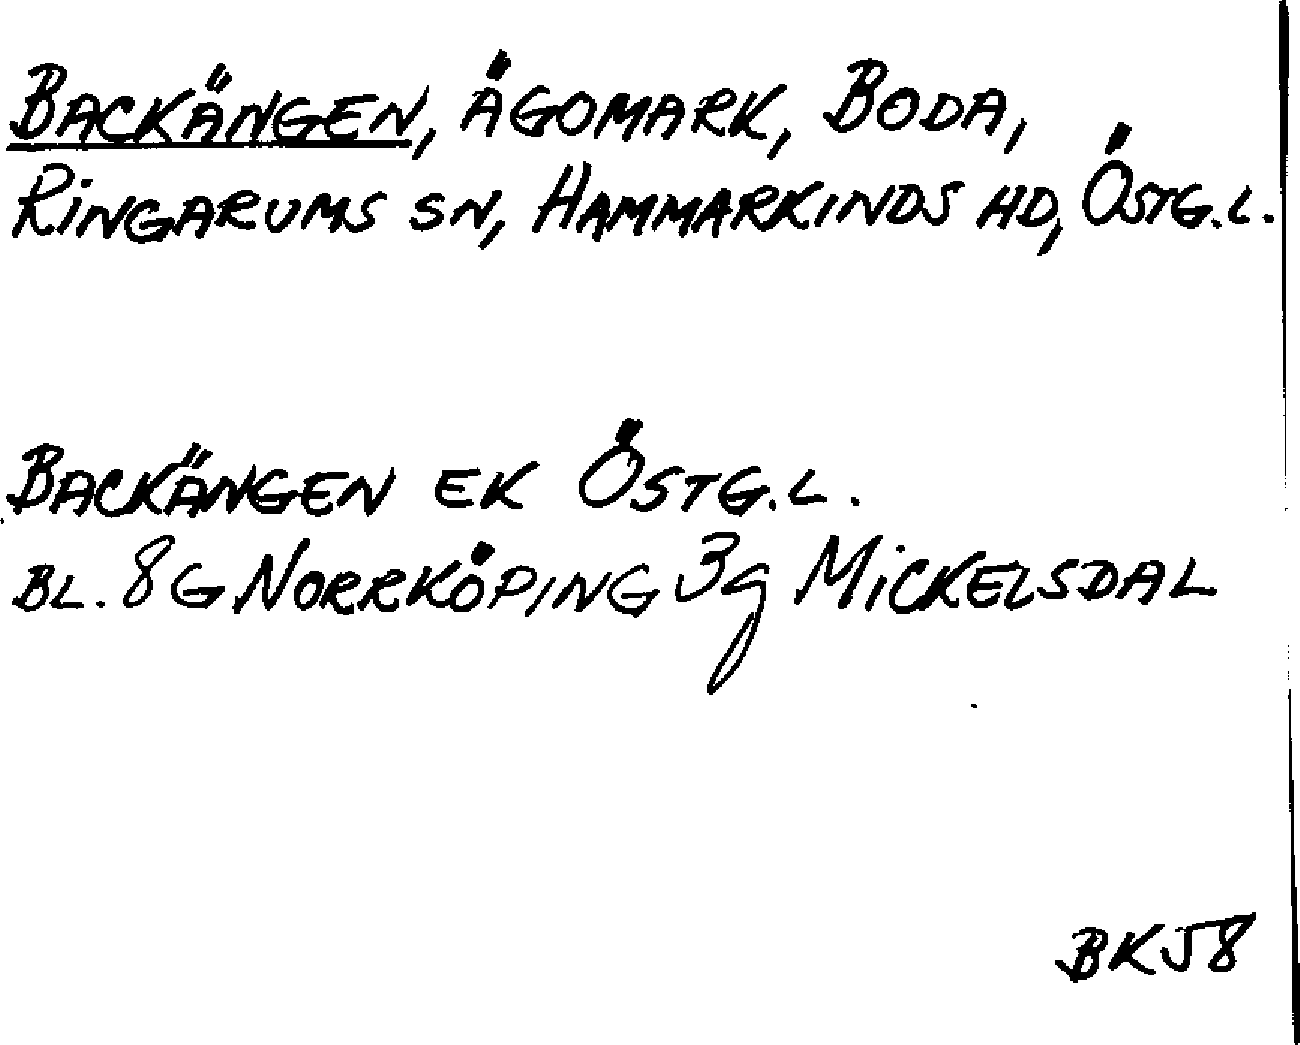 BACKÄNGEN, ÄGOMARK, BODA,
RINGARUMS SN, HAMMARKINDS HD, ÖSTG.L.
BACKÄNGEN EK ÖSTG.L.
BL. 8G NORRKÖPING 3g MICKELSDAL
BK58